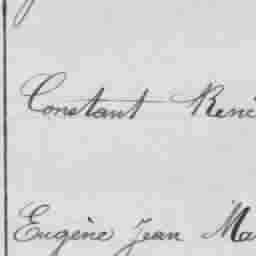 Constant René
Eugène Jean Ma